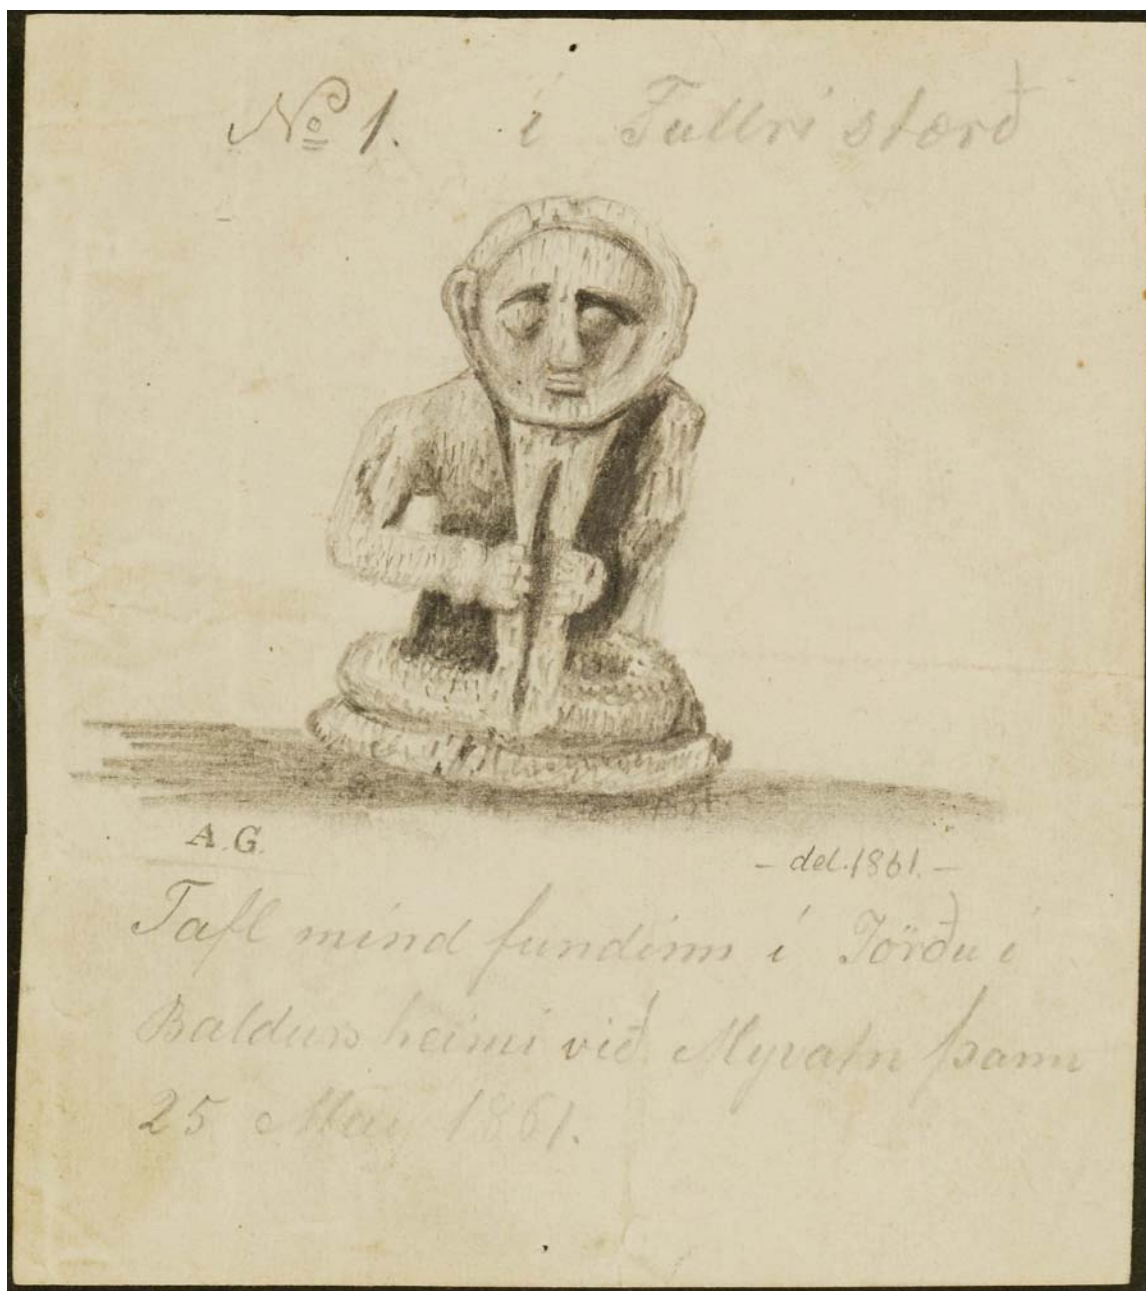 No 1. í Fullri stærð
A.G.
- del. 1861. -
Tafl mind fundinn í Jörðu í
Baldurs heimi við Myvatn þann
25 May 1861.